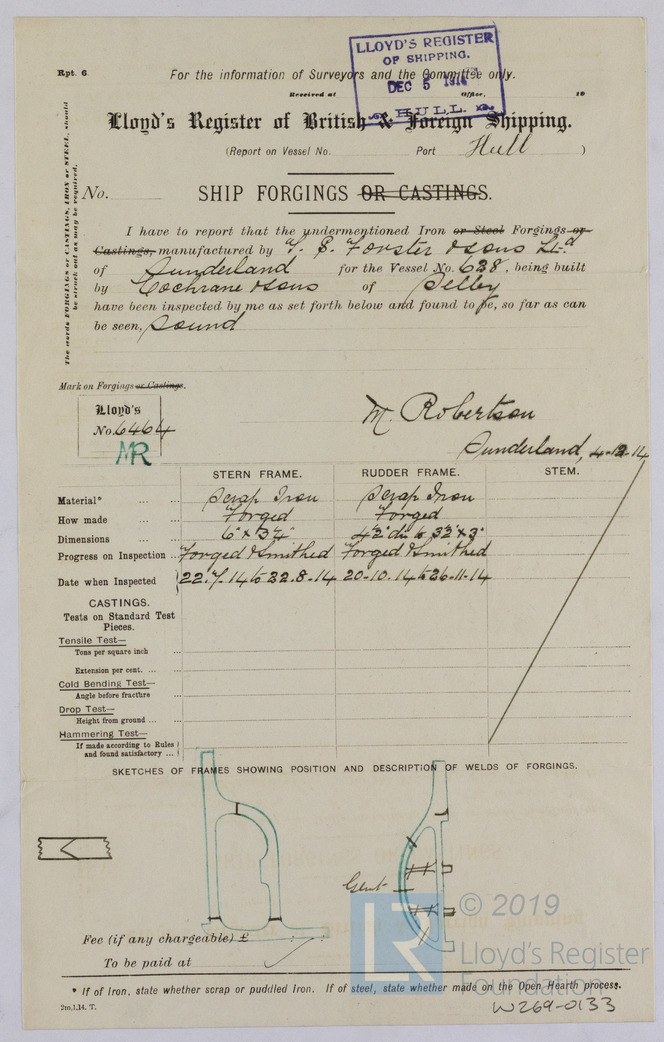 Rpt. 6
For the information of Surveyors and the Committee only.
LLOYD'S REGISTER
OF SHIPPING.
DEC 5 1914
HULL.
Received at Office, 19
Lloyd's Register of British & Foreign Shipping.
(Report on Vessel No. Port Hull )
The words FORGINGS or CASTINGS, IRON or STEEL, should
be struck out as may be required.
No.
SHIP FORGINGS OR CASTINGS.
I have to report that the undermentioned Iron or Steel Forgings or
Castings, manufactured by T. S. Forster & Sons Ltd
of Sunderland for the Vessel No. 628, being built
by Cochrane & Sons of Selby
have been inspected by me as set forth below and found to be, so far as can
be seen, Sound
Mark on Forgings or Castings.
Lloyd's
No. 6464
MR
M. Robertson
Sunderland, 4-12-14
STERN FRAME. RUDDER FRAME. STEM.
Material* ... ... Scrap Iron Scrap Iron
How made ... ... Forged Forged
Dimensions ... ...
Progress on Inspection ... Forged & Smithed Forged & Smithed
Date when Inspected 22.7.14 to 22.8.14 20-10.14 to 26-11-14
CASTINGS.
Tests on Standard Test
Pieces.
Tensile Test—
Tons per square inch ...
Extension per cent. ... ...
Cold Bending Test—
Angle before fracture ...
Drop Test—
Height from ground ... ...
Hammering Test—
If made according to Rules
and found satisfactory ...
SKETCHES OF FRAMES SHOWING POSITION AND DESCRIPTION OF WELDS OF FORGINGS.
Fee (if any chargeable) £
To be paid at
LR
© 2019
Lloyd's Register
Foundation
* If of Iron, state whether scrap or puddled Iron. If of steel, state whether made on the Open Hearth process.
2m,1,14. T.
W269-0133